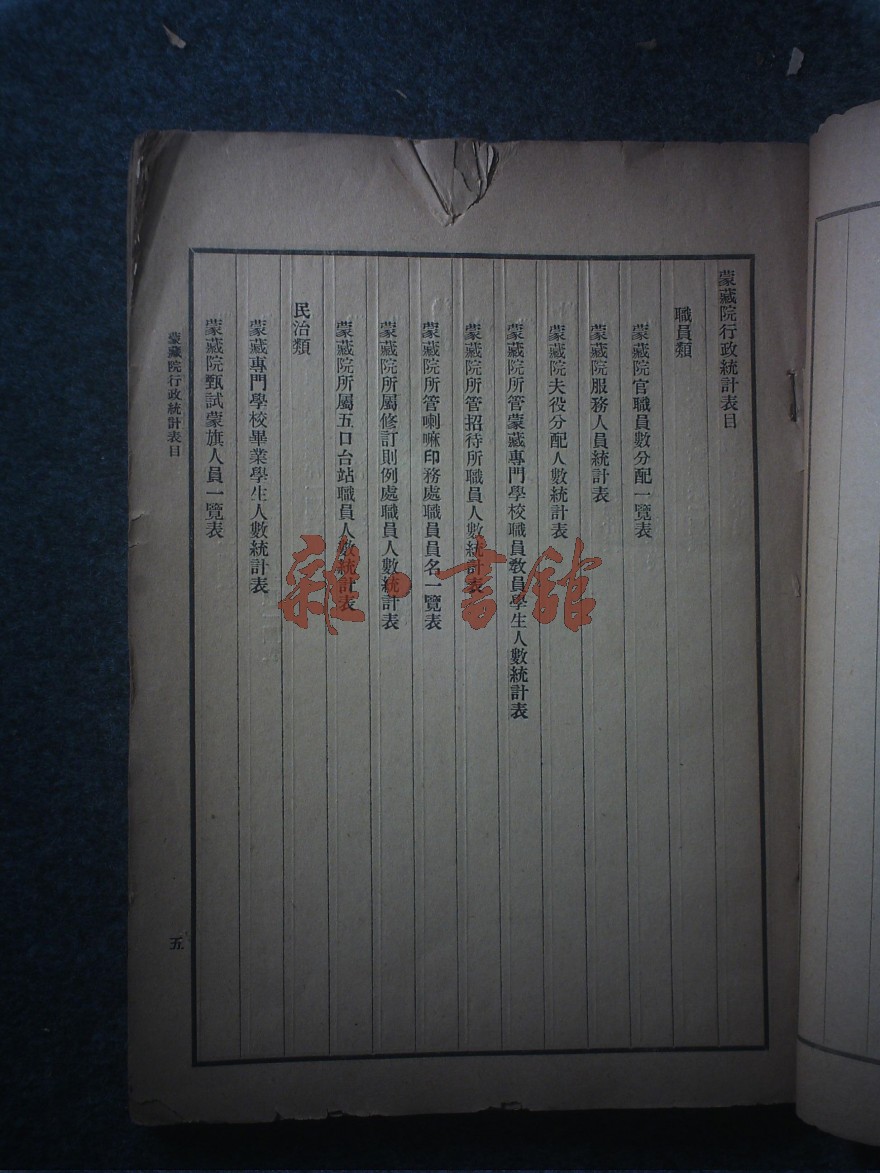 蒙藏院行政統計表目
職員類
蒙藏院官職員數分配一覽表
蒙藏院服務人員統計表
蒙藏院夫役分配人數統計表
蒙藏院所管蒙藏專門學校職員敎員學生人數統計表
蒙藏院所管招待所職員人數統計表
蒙藏院所管喇嘛印務處職員員名一覽表
蒙藏院所屬修訂則例處職員人數統計表
蒙藏院所屬五口台站職員人數統計表
民治類
蒙藏專門學校畢業學生人數統計表
蒙藏院甄試蒙旗人員一覽表
蒙藏院行政統計表目
五
雜·書館